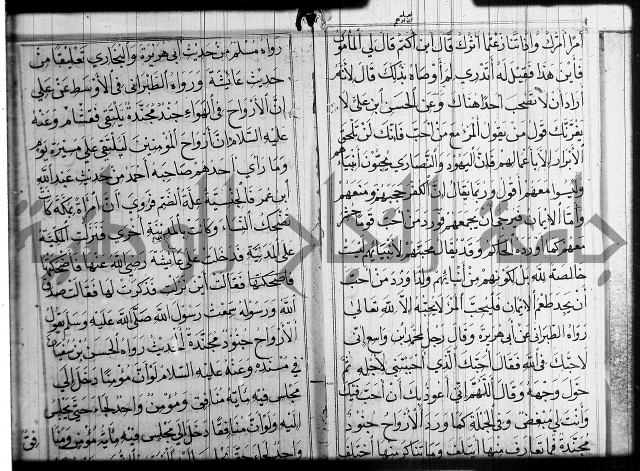 أمرا أمرك وإذا تنازعتما أترك قال ابن أكثم قال لي المأمون
فأين هذا فقيل له أتدري لم أوصاه بذلك قال لا
أراد أن لا يصحب أحدا هناك وعن الحسن ابن علي لا
يغرنك قول من يقول المرء مع من أحب فإنك لن تلحق
الأبرار إلا بأعمالهم فإن اليهود والنصارى يحبون أنبياءهم
وليسوا معهم أقول وربما يقال إن الكفر حجبهم ومنعهم
وأما الإيمان يجمعهم وورد من أحب قوما حشر
معهم كما ورد الحاكم وقد يقال محبتهم لأنبيائهم ليست
خالصة لله بل لكونهم من أنبيائهم ولذا ورد من أحب
أن يجد طعم الإيمان فليحب المرء لا يحبه إلا لله تعالى
رواه الطبراني عن أبي هريرة وقال رجل لمحمد بن واسع إني
لأحبك في الله فقال أحبك الذي أحببتني لأجله ثم
حول وجهه وقال اللهم إني أعوذ بك أن أحب فيك
وأنت لي مبغض وفي الجملة كما ورد الأرواح جنود
مجندة فما تعارف منها ائتلف وما تناكر منها اختلف
رواه مسلم من حديث أبي هريرة والبخاري تعليقا من
حديث عائشة ورواه الطبراني في الأوسط عن علي
إن الأرواح في الهواء جند مجندة يلتقي فتشام وعنه
عليه السلام إن أرواح المؤمنين ليلتقي على مسيرة يوم
وما رأى أحدهم صاحبه أحمد من حديث عبد الله
ابن عمر فالجنسية علة الضم فروي أن امرأة بمكة كانت
تضحك النساء وكانت بالمدينة أخرى فنزلت المكية
على المدنية فدخلت على عائشة رضي الله عنها فأضحكتها
فقالت أين نزلت فذكرت لها فقالت صدق
الله ورسوله سمعت رسول الله صلى الله عليه وسلم يقول
الأرواح جنود مجندة الحديث رواه الحسن بن سفيان
في مسنده وعنه عليه السلام لو أن مؤمنا دخل إلى
مجلس فيه مائة منافق ومؤمن واحد لجاء حتى يجلس
إليه ولو أن منافقا دخل إلى مجلس فيه مائة مؤمن ومنافق